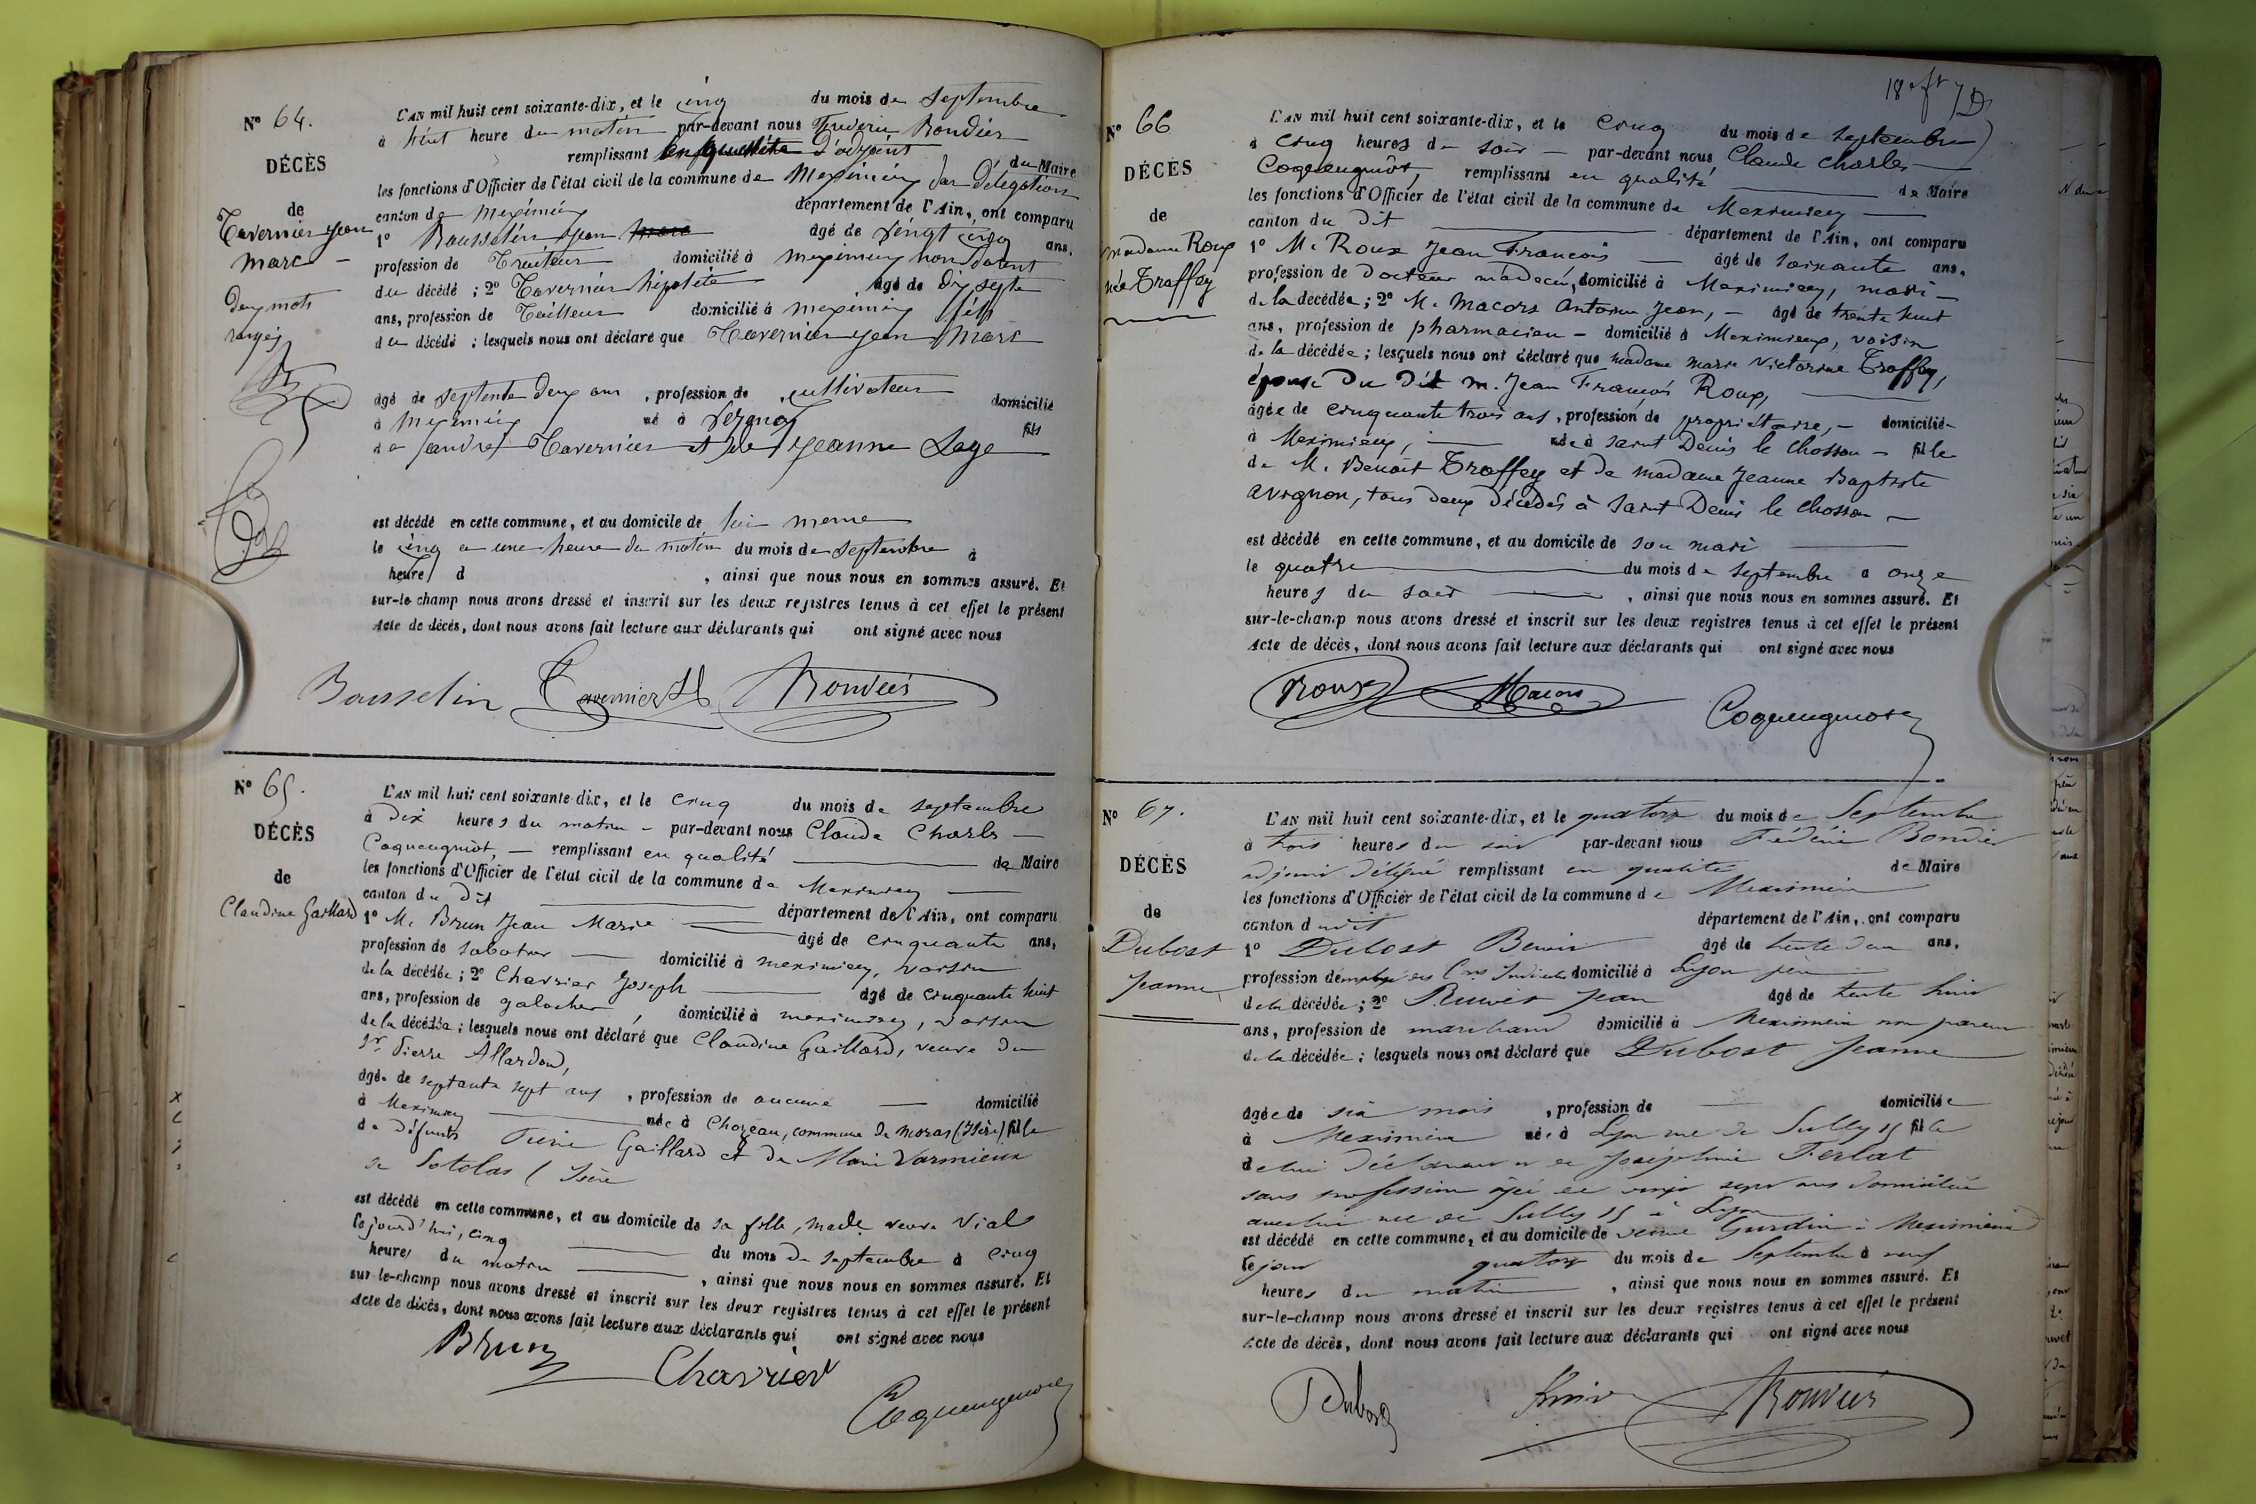 N° 64.
DÉCÈS
de
Tavernier Jean
Marc
Deux mots
rayés
L'AN mil huit cent soixante-dix, et le cinq du mois de Septembre
à huit heure du matin par-devant nous Frédéric Rondier
remplissant en qualité d'adjoint du Maire
les fonctions d'Officier de l'état civil de la commune de Meximieu par Délégation
canton de Meximieu département de l'Ain, ont comparu
1° Bousselin Jean âgé de vingt cinq ans.
profession de domicilié à Meximieu non parent
du décédé ; 2° Tavernier hipolite âgé de dix sept
ans, profession de Tailleur domicilié à Meximieu fils
du décédé ; lesquels nous ont déclaré que Tavernier Jean Marc
âgé de septente deux ans, profession de cultivateur domicilié
à Meximieu né à fils
de Tavernier et de Jeanne Lage
est décédé en cette commune, et au domicile de lui meme
le cinq a une heure du matin du mois de septembre à
heure d , ainsi que nous nous en sommes assuré. Et
sur-le-champ nous avons dressé et inscrit sur les deux registres tenus à cet effet le présent
Acte de décès, dont nous avons fait lecture aux déclarants qui ont signé avec nous
Bousselin Tavernier H
N° 65.
DÉCÈS
de
Claudine Gaillard
L'AN mil huit cent soixante-dix, et le cinq du mois de septembre
à Dix heures du matin - par-devant nous Claude Charles -
Coquengniot, - remplissant en qualité de Maire
les fonctions d'Officier de l'état civil de la commune de Meximieu
canton du dit département de l'Ain, ont comparu
1° M. Brun Jean Marie âgé de cinquante ans,
profession de sabotier domicilié à meximieu, voisin
de la décédée ; 2° Charrier Joseph âgé de cinquante huit
ans, profession de galocher, domicilié à meximieu, voisin
de la décédée ; lesquels nous ont déclaré que Claudine Gaillard, veuve du
Sr Pierre Allardon,
âgée de septante sept ans, profession de aucune domicilié
à Meximieu née à Chozeau, commune de Moras (Isère) fille
de défunts Pierre Gaillard et de Marie Varmieux
de Satolas (Isère
est décédé en cette commune, et au domicile de sa fille, made veuve Vial
le jourd'hui, cinq du mois de septembre à cinq
heures du matin , ainsi que nous nous en sommes assuré. Et
sur-le-champ nous avons dressé et inscrit sur les deux registres tenus à cet effet le présent
Acte de décès, dont nous avons fait lecture aux déclarants qui ont signé avec nous
Brun Charrier
Coquengniot
N° 66
DÉCÈS
de
Madame Roux
née Traffey
L'AN mil huit cent soixante-dix, et le cinq du mois de septembre
à cinq heures du soir - par-devant nous Claude Charles -
Coquengniot, remplissant en qualité de Maire
les fonctions d'Officier de l'état civil de la commune de Meximieu
canton du dit département de l'Ain, ont comparu
1° M. Roux Jean François âgé de soixante ans,
profession de docteur médecin, domicilié à Meximieu, mari -
de la décédée ; 2° M. Macors Antoine Jean, - âgé de trente huit
ans, profession de pharmacien - domicilié à Meximieux, voisin
de la décédée ; lesquels nous ont déclaré que madame Marie Victorine Traffey,
épouse du dit M. Jean François Roux,
âgée de cinquante trois ans, profession de propriétaire, - domicilié
à Meximieux, née à Saint Denis le Chosson - fille
de M. Benoit Traffey et de madame Jeanne Baptiste
Avignon, tous deux décédés à Saint Denis le Chosson -
est décédé en cette commune, et au domicile de son mari
le quatre du mois de septembre à onze
heures du soir , ainsi que nous nous en sommes assuré. Et
sur-le-champ nous avons dressé et inscrit sur les deux registres tenus à cet effet le présent
Acte de décès, dont nous avons fait lecture aux déclarants qui ont signé avec nous
Roux Macors
Coquengniot
N° 67.
DÉCÈS
de
Dubost
Jeanne
L'AN mil huit cent soixante-dix, et le quatorze du mois de Septembre
à trois heures du soir par-devant nous Frédéric
adjoint délégué remplissant en qualité de Maire
les fonctions d'Officier de l'état civil de la commune de Meximieux
canton dudit département de l'Ain, ont comparu
1° Dubost Benoit âgé de trente deux ans.
profession de domicilié à Lyon père
de la décédée ; 2° Jean âgé de trente huit
ans, profession de marchand domicilié à Meximieux non parent
de la décédée ; lesquels nous ont déclaré que Dubost Jeanne
âgée de six mois, profession de domiciliée
à Meximieux née à Lyon rue de Sully 15 fille
de lui déclarant et de Joséphine Ferlat
sans profession âgée de vingt sept ans domiciliée
avec lui rue de Sully 15 à Lyon
est décédé en cette commune, et au domicile de à Meximieux
le jour quatorze du mois de Septembre à neuf
heures du matin , ainsi que nous nous en sommes assuré. Et
sur-le-champ nous avons dressé et inscrit sur les deux registres tenus à cet effet le présent
Acte de décès, dont nous avons fait lecture aux déclarants qui ont signé avec nous
Dubost